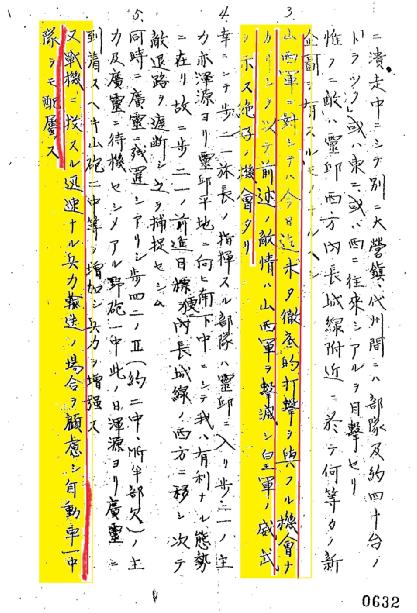 ニ潰走中ニシテ別ニ大營鎮、代州間ニハ部隊及約四十台ノ
トラツク或ハ東ニ或ハ西ニ往來シアルヲ目撃セリ
惟フニ敵ハ靈邱西方内長城線附近ニ於テ何等カノ新
企圖ヲ有スルモノナルヘシ
3. 山西軍ニ對シテハ今日迄未タ徹底的打撃ヲ與フル機會ナ
カリシヲ以テ前述ノ敵情ハ山西軍ヲ撃滅シ皇軍ノ威武
ヲ示ス絶好ノ機會タリ
4. 幸ニシテ歩二一旅長ノ指揮スル部隊ハ靈邱ニ入リ歩二一ノ主
力亦渾源ヨリ靈邱平地ニ向ヒ南下中ニシテ我ハ有利ナル態勢
ニ在リ故ニ歩二一ノ前進目標ヲ内長城線ノ西方ニ移シ次テ
敵退路ヲ遮断シ之ヲ捕捉セシム
5. 同時ニ廣靈ニ殘置シアリシ歩四二ノⅡ(約二中、所半部欠)ノ主
力及廣靈ニ待機セシメアル野砲一中此ノ日渾源ヨリ廣靈ニ
到着スヘキ山砲二中等ヲ増加シ兵力ヲ増強ス
又戰機ニ投スル迅速ナル兵力轉送ノ場合ヲ顧慮シ自動車一中
隊ヲモ配屬ス
0632